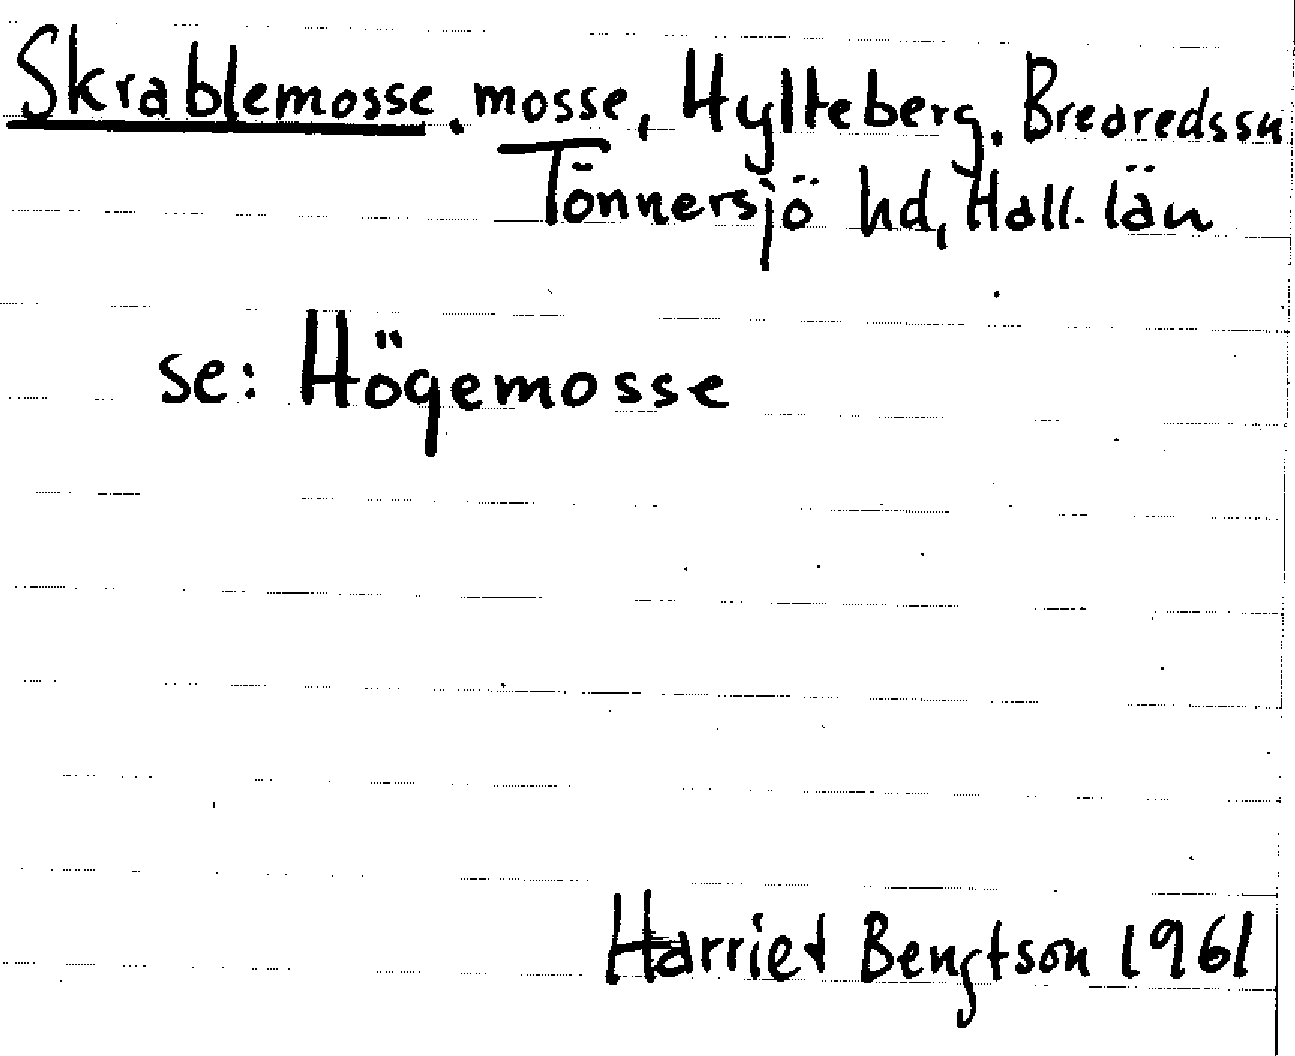 Skrablemosse. mosse, Hylteberg. Breoredssn
Tönnersjö hd, Hall. län
se: Högemosse
Harriet Bengtson 1961